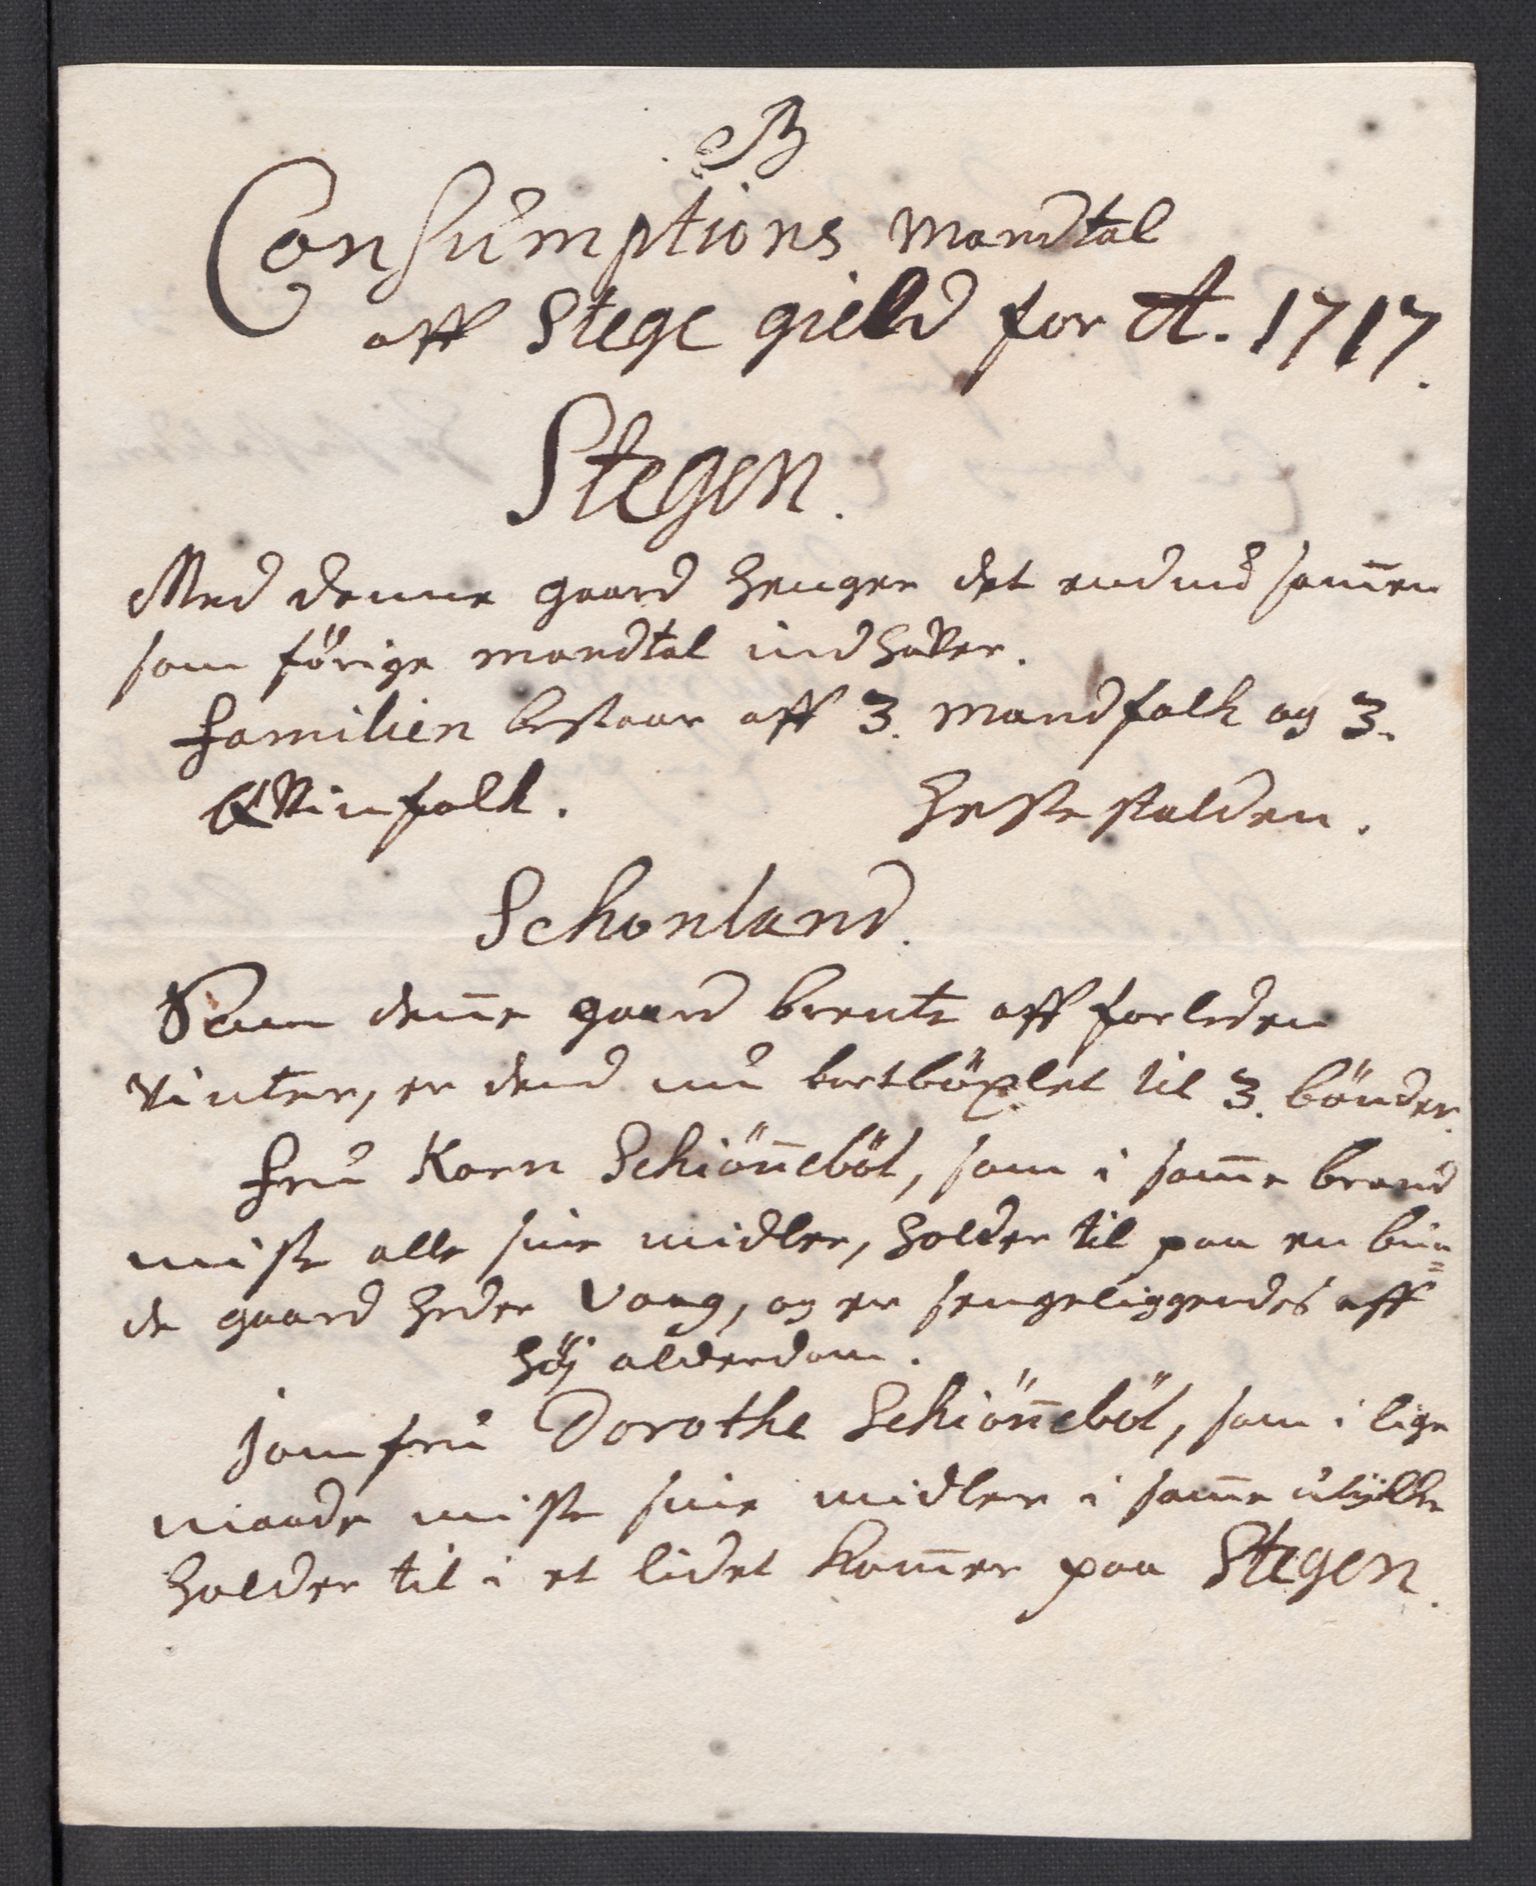 B
Consumptions Mandtal
aff Stege gield for A. 1717.
Stegen.
Med denne gaard henger det endnu samen
som förige mandtal indholder.
Familien bestaar aff 3. Mandfolk og 3.
qvinfolk. Hestestalden.
Schonland.
Som dene gaard brente aff forleden
vinter, er dend nu bortböxlet til 3. bönder.
Fru Karn Schiöneböl, som i same brand
miste alle sine midler, holder til paa en bön=
de gaard heder Vaag, og er sengeliggendes aff
höj alderdom.
Jomfru Dorothe Schiöneböl, som i lige
maade miste sine midler i same ulykke
holder til i et lidet kamer paa Stegen.